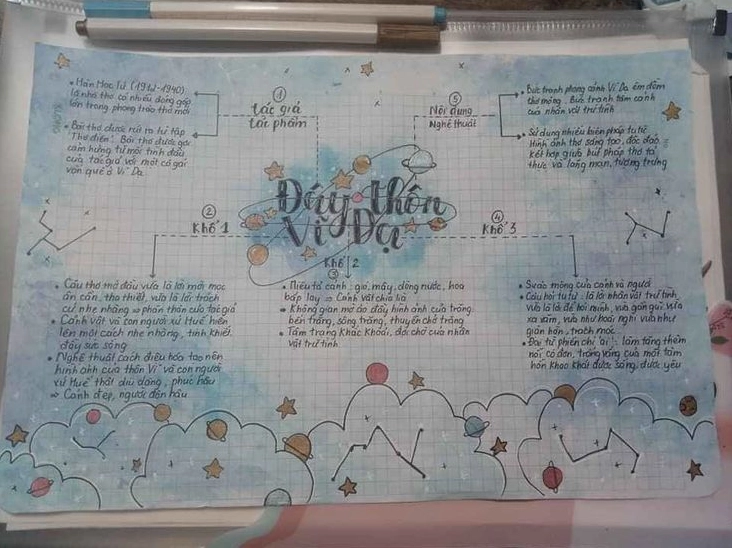 Đây thôn
Vĩ Dạ
①
tác giả
tác phẩm
• Hàn Mặc Tử (1912-1940)
là nhà thơ có nhiều đóng góp
lớn trong phong trào thơ mới
• Bài thơ được rút ra từ tập
"Thơ điên". Bài thơ được gợi
cảm hứng từ mối tình đầu
của tác giả với một cô gái
vốn quê ở Vĩ Dạ
②
Khổ 1
• Câu thơ mở đầu vừa là lời mời mọc
ân cần, tha thiết, vừa là lời trách
cứ nhẹ nhàng ⇒ phân thân của tác giả
• Cảnh vật và con người xứ Huế hiện
lên một cách nhẹ nhàng, tinh khiết
đầy sức sống
• Nghệ thuật cách điệu hóa tạo nên
hình ảnh của thôn Vĩ và con người
xứ Huế thật dịu dàng, phúc hậu
⇒ Cảnh đẹp, người đôn hậu
Khổ 2
③
• Miêu tả cảnh, gió, mây, dòng nước, hoa
bắp lay ⇒ Cảnh vật chia lìa
• Không gian mờ ảo đầy hình ảnh của trăng
bến trăng, sông trăng, thuyền chở trăng
• Tâm trạng khắc khoải, đợi chờ của nhân
vật trữ tình
④
Khổ 3
• Sự ảo mộng của cảnh và người
• Câu hỏi tu từ: là lời nhân vật trữ tình,
vừa là để hỏi mình, vừa gần gũi vừa
xa xăm, vừa như hoài nghi vừa như
giận hờn, trách móc
• Đại từ phiếm chỉ "ai": làm tăng thêm
nỗi cô đơn, trống vắng của một tâm
hồn khao khát được sống, được yêu
⑤
Nội dung
Nghệ thuật
• Bức tranh phong cảnh Vĩ Dạ êm đềm
thơ mộng. Bức tranh tâm cảnh
của nhân vật trữ tình
• Sử dụng nhiều biện pháp tu từ
Hình ảnh thơ sáng tạo, độc đáo,
kết hợp giữa bút pháp thơ tả
thực và lãng mạn, tượng trưng